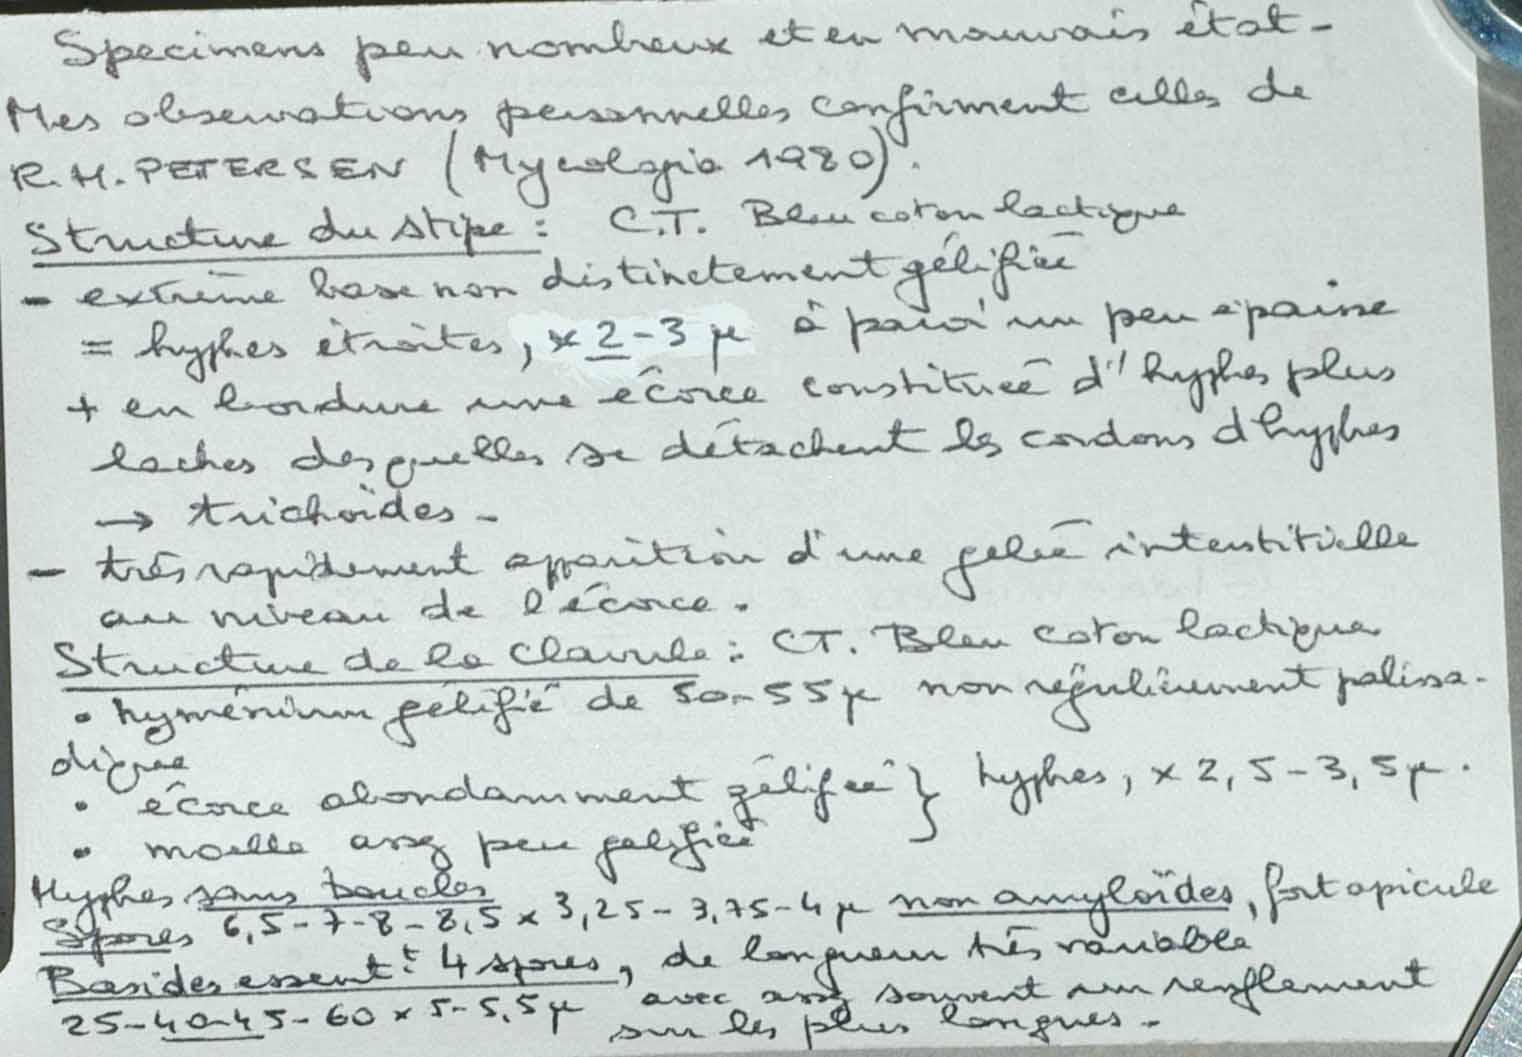 Specimens peu nombreux et en mauvais état -
Mes observations personnelles confirment celles de
R.H. PETERSEN (Mycologia 1980).
Structure du stipe : C.T. Bleu coton lactique
- extrème base non distinctement gélifiée
= hyphes étroites, × 2-3 µ à paroi un peu épaisse
+ en bordure une écorce constituée d'hyphes plus
laches desquelles se détachent les cordons d'hyphes
→ trichoïdes -
- très rapidement apparition d'une gelée interstitielle
au niveau de l'écorce.
Structure de la clavule : CT. Bleu coton lactique
• hyménium gélifié de 50-55 µ non régulièrement palissa-
dique
• écorce abondamment gélifiée } hyphes, × 2,5-3,5 µ.
• moelle assez peu gélifiée
Hyphes sans boucles
Spores 6,5-7-8-8,5 × 3,25-3,75-4 µ non amyloïdes, fort apicule
Basides essent.t 4 spores, de longueur très variable
25-40-45-60 × 5-5,5 µ avec assez souvent un renflement
sur les plus longues -